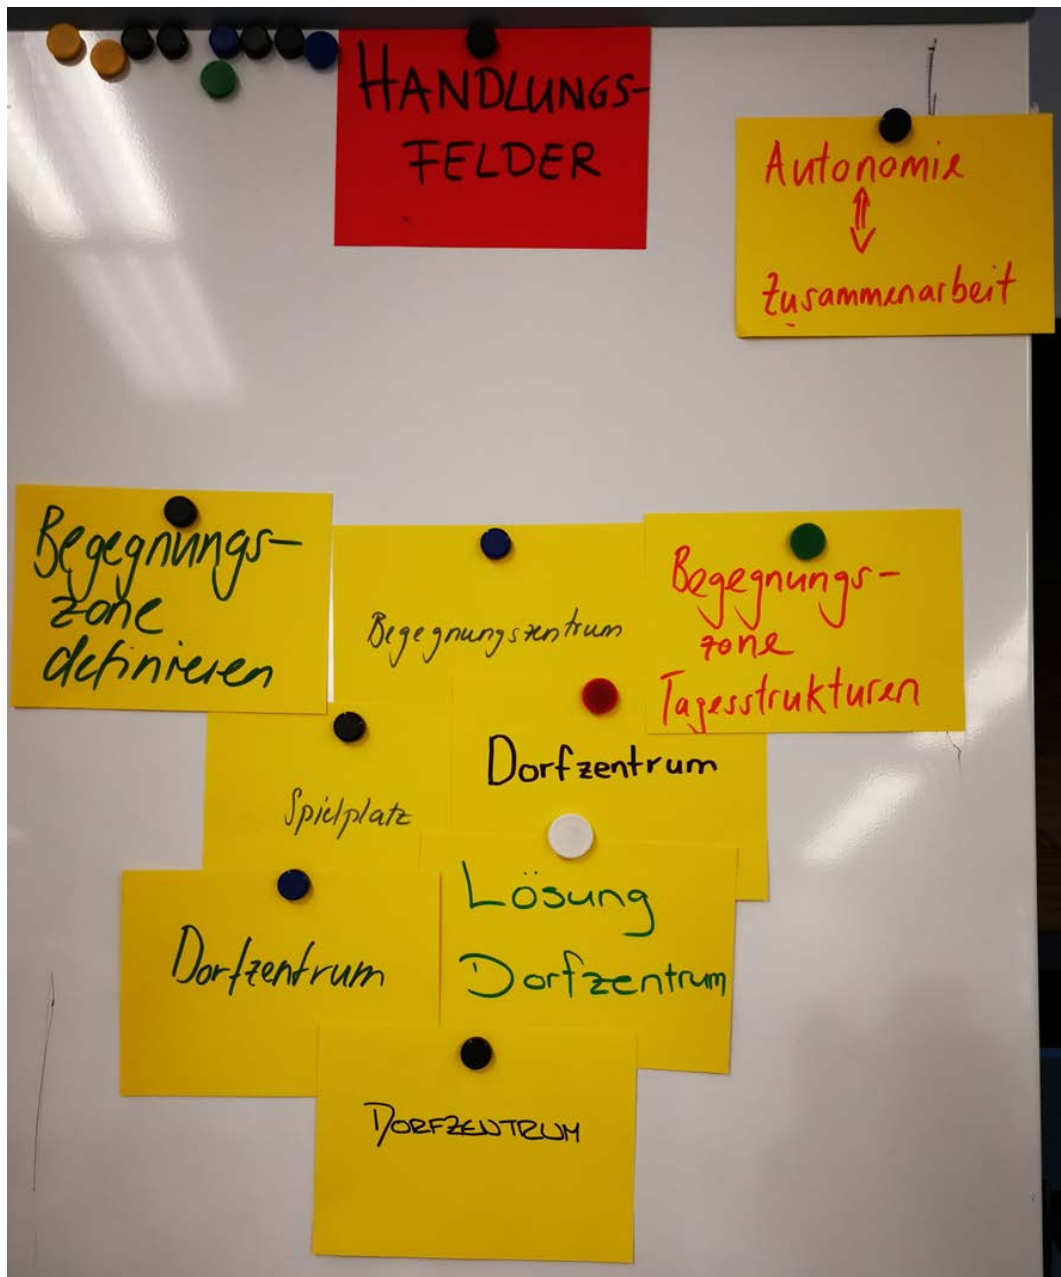 HANDLUNGS-
FELDER
Autonomie
Zusammenarbeit
Begegnungs-
zone
definieren
Begegnungszentrum
Begegnungs-
zone
Tagesstrukturen
Dorfzentrum
Spielplatz
Lösung
Dorfzentrum
Dorfzentrum
DORFZENTRUM